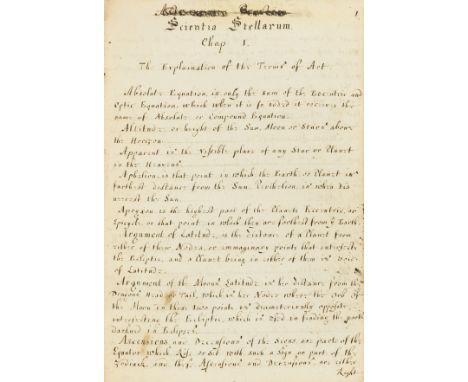 1
Scientia Stellarum
Chap 1.
The Explaination of the Terms of Art.
Absolute Equation, is only the sum of the Eccentric and
Optic Equation, which when it is so aded it receives the
name of Absolute or Compound Equation.
Altitude or height of the Sun, Moon or Stars above
the Horizon.
Apparent is the visible place of any Star or Planet
in the Heavens.
Aphelion is that point in which the Earth or Planet is
farthest distance from the Sun, Perihelion is when tis
nearest the Sun.
Apogæon is the highest part of the Planets Eccentric, or
Epicycle, or that point in which they are farthest from ye Earth.
Argument of Latitude, is the distance of a Planet from
either of these Nodes, or immaginary points that intersect
the Ecliptic, and a Planet being in either of them is void
of Latitude.
Argument of the Moons Latitude is her distance from the
Dragons Head or Tail, which is her Nodes where the Orb of
the Moon in these two points is diametrically opposite
intersecting the Ecliptic, which is Used in finding the parts
darkned in Eclipses.
Ascentions and Descensions of the Signs are parts of the
Equator which Rise or set with such a Sign or part of the
Zodiack, and these Ascensions and Descensions are either
Right